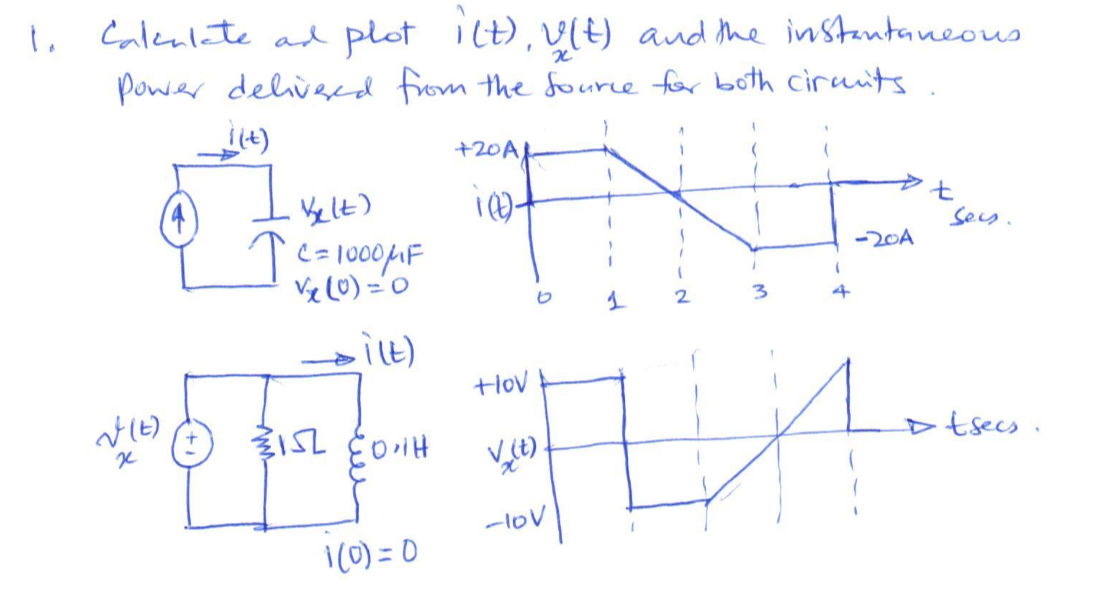 1. Calculate ad plot i(t), v_x(t) and the instantaneous
power delivered from the source for both circuits.
i(t)
+20A
i(t)
t
secs.
-20A
V_x(t)
C = 1000μF
V_x(0) = 0
0 1 2 3 4
i(t)
+10V
v_x(t)
1Ω
0.1H
V_x(t)
t secs.
-10V
i(0) = 0